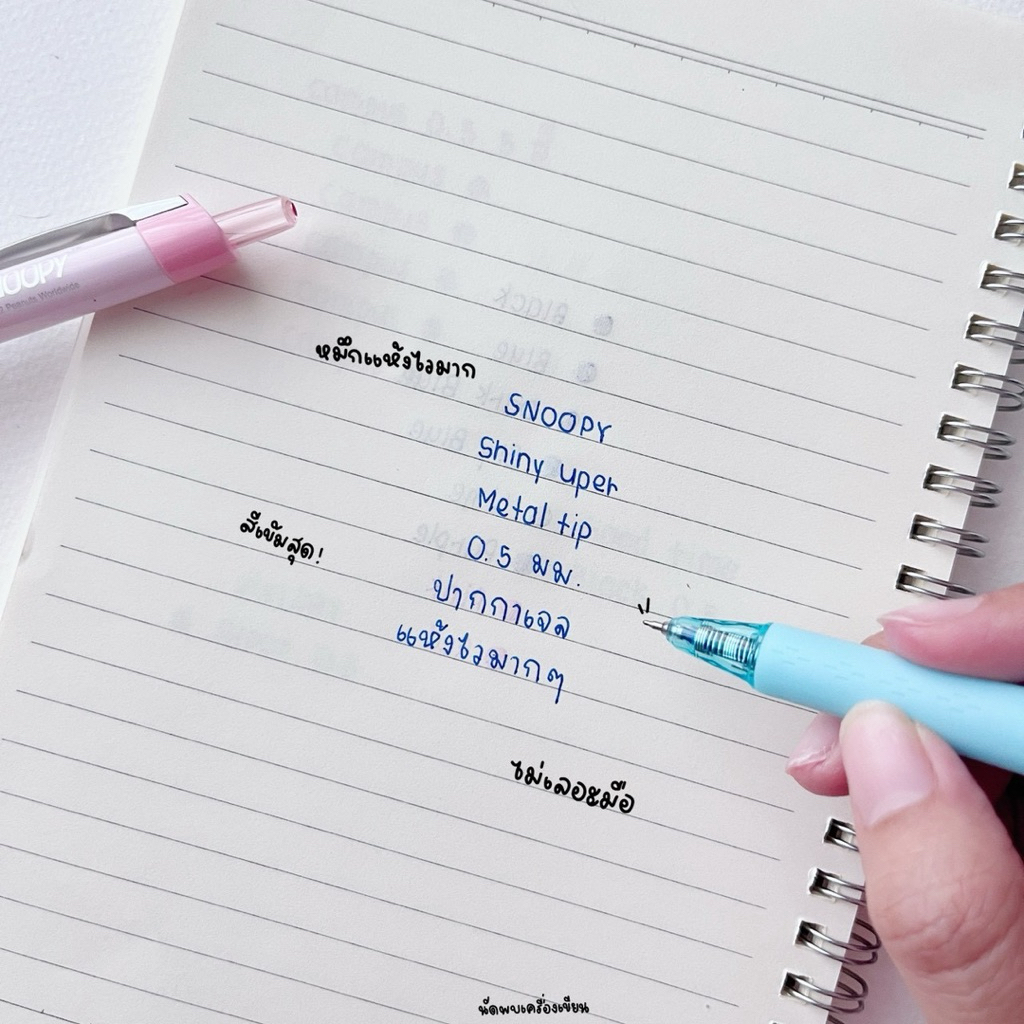 SNOOPY
Peanuts Worldwide
หมึกแห้งไวมาก
SNOOPY
Shiny uper
Metal tip
0.5 มม.
สีเข้มสุด!
ปากกาเจล
แห้งไวมากๆ
ไม่เลอะมือ
นัดพบเครื่องเขียน